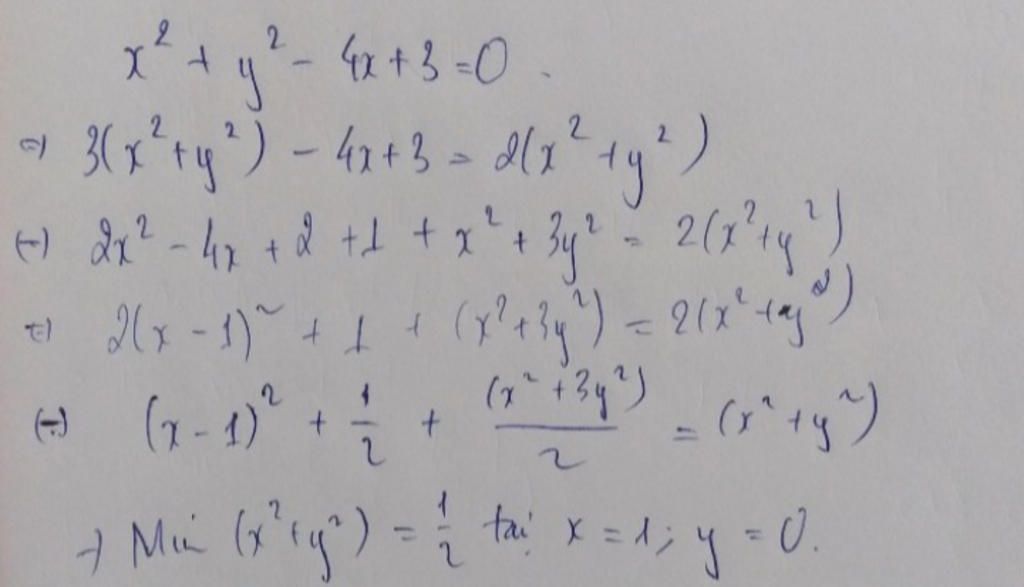 x² + y² - 4x + 3 = 0.
⇔ 3(x² + y²) - 4x + 3 = 2(x² + y²)
⇔ 2x² - 4x + 2 + 1 + x² + 3y² = 2(x² + y²)
⇔ 2(x - 1)² + 1 + (x² + 3y²) = 2(x² + y²)
⇔ (x - 1)² + 1/2 + (x² + 3y²)/2 = (x² + y²)
→ Min (x² + y²) = 1/2 tại x = 1; y = 0.